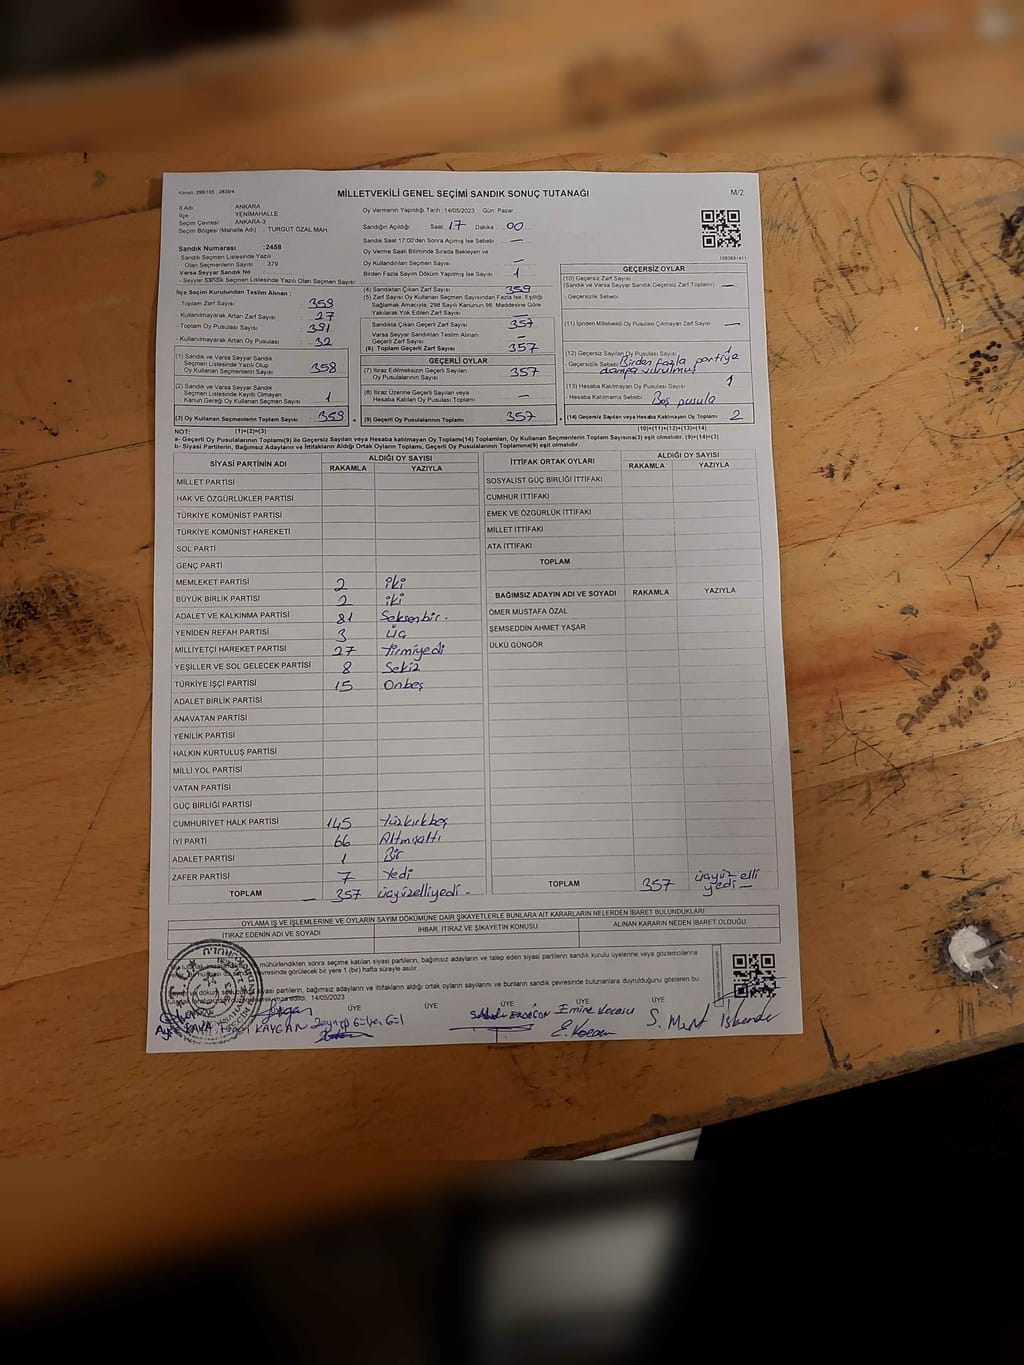 Kanun: 298/105 , 2839/4
MİLLETVEKİLİ GENEL SEÇİMİ SANDIK SONUÇ TUTANAĞI
M/2
İl Adı : ANKARA
İlçe : YENİMAHALLE
Seçim Çevresi : ANKARA-3
Seçim Bölgesi (Mahalle Adı) : TURGUT ÖZAL MAH
Oy Vermenin Yapıldığı Tarih :14/05/2023 Gün: Pazar
Sandığın Açıldığı Saat: 17 Dakika : 00
Sandık Saat 17:00'den Sonra Açılmış İse Sebebi : —
Oy Verme Saati Bitiminde Sırada Bekleyen ve
Oy Kullandırılan Seçmen Sayısı : —
Birden Fazla Sayım Döküm Yapılmış İse Sayısı : 1
Sandık Numarası :2458
- Sandık Seçmen Listesinde Yazılı
Olan Seçmenlerin Sayısı: 379
Varsa Seyyar Sandık No :
- Seyyar Sandık Seçmen Listesinde Yazılı Olan Seçmen Sayısı:
İlçe Seçim Kurulundan Teslim Alınan ;
- Toplam Zarf Sayısı : 359
- Kullanılmayarak Artan Zarf Sayısı : 27
- Toplam Oy Pusulası Sayısı : 391
- Kullanılmayarak Artan Oy Pusulası : 32
(1) Sandık ve Varsa Seyyar Sandık
Seçmen Listesinde Yazılı Olup
Oy Kullanan Seçmenlerin Sayısı : 358
(2) Sandık ve Varsa Seyyar Sandık
Seçmen Listesinde Kayıtlı Olmayan
Kanun Gereği Oy Kullanan Seçmen Sayısı : 1
(3) Oy Kullanan Seçmenlerin Toplam Sayısı : 359
(4) Sandıktan Çıkan Zarf Sayısı : 359
(5) Zarf Sayısı Oy Kullanan Seçmen Sayısından Fazla İse, Eşitliği
Sağlamak Amacıyla, 298 Sayılı Kanunun 98. Maddesine Göre
Yakılarak Yok Edilen Zarf Sayısı :
Sandıkta Çıkan Geçerli Zarf Sayısı : 357
Varsa Seyyar Sandıktan Teslim Alınan
Geçerli Zarf Sayısı : —
(6) Toplam Geçerli Zarf Sayısı : 357
GEÇERLİ OYLAR
(7) İtiraz Edilmeksizin Geçerli Sayılan
Oy Pusulalarının Sayısı : 357
(8) İtiraz Üzerine Geçerli Sayılan veya
Hesaba Katılan Oy Pusulası Toplamı : —
(9) Geçerli Oy Pusulalarının Toplamı : 357
1083691411
GEÇERSİZ OYLAR
(10) Geçersiz Zarf Sayısı
(Sandık ve Varsa Seyyar Sandık Geçersiz Zarf Toplamı) : —
- Geçersizlik Sebebi :
(11) İçinden Milletvekili Oy Pusulası Çıkmayan Zarf Sayısı : —
(12) Geçersiz Sayılan Oy Pusulası Sayısı : 1
Geçersizlik Sebebi : Birden fazla partiye
damga vurulmuş
(13) Hesaba Katılmayan Oy Pusulası Sayısı : 1
Hesaba Katılmama Sebebi : Boş pusula
(14) Geçersiz Sayılan veya Hesaba Katılmayan Oy Toplamı : 2
NOT: (1)+(2)=(3)
(10)+(11)+(12)+(13)=(14)
a- Geçerli Oy Pusulalarının Toplamı(9) ile Geçersiz Sayılan veya Hesaba Katılmayan Oy Toplamı(14) Toplamları, Oy Kullanan Seçmenlerin Toplam Sayısına(3) eşit olmalıdır. (9)+(14)=(3)
b- Siyasi Partilerin, Bağımsız Adayların ve İttifakların Aldığı Ortak Oyların Toplamı, Geçerli Oy Pusulalarının Toplamına(9) eşit olmalıdır.
SİYASİ PARTİNİN ADI ALDIĞI OY SAYISI
RAKAMLA YAZIYLA
MİLLET PARTİSİ
HAK VE ÖZGÜRLÜKLER PARTİSİ
TÜRKİYE KOMÜNİST PARTİSİ
TÜRKİYE KOMÜNİST HAREKETİ
SOL PARTİ
GENÇ PARTİ
MEMLEKET PARTİSİ 2 iki
BÜYÜK BİRLİK PARTİSİ 2 iki
ADALET VE KALKINMA PARTİSİ 81 Seksenbir.
YENİDEN REFAH PARTİSİ 3 üç
MİLLİYETÇİ HAREKET PARTİSİ 27 Yirmiyedi
YEŞİLLER VE SOL GELECEK PARTİSİ 8 Sekiz
TÜRKİYE İŞÇİ PARTİSİ 15 Onbeş
ADALET BİRLİK PARTİSİ
ANAVATAN PARTİSİ
YENİLİK PARTİSİ
HALKIN KURTULUŞ PARTİSİ
MİLLİ YOL PARTİSİ
VATAN PARTİSİ
GÜÇ BİRLİĞİ PARTİSİ
CUMHURİYET HALK PARTİSİ 145 Yüzkırkbeş
İYİ PARTİ 66 Altmışaltı
ADALET PARTİSİ 1 Bir
ZAFER PARTİSİ 7 Yedi
TOPLAM — 357 üçyüzelliyedi -
İTTİFAK ORTAK OYLARI ALDIĞI OY SAYISI
RAKAMLA YAZIYLA
SOSYALİST GÜÇ BİRLİĞİ İTTİFAKI
CUMHUR İTTİFAKI
EMEK VE ÖZGÜRLÜK İTTİFAKI
MİLLET İTTİFAKI
ATA İTTİFAKI
TOPLAM
BAĞIMSIZ ADAYIN ADI VE SOYADI RAKAMLA YAZIYLA
ÖMER MUSTAFA ÖZAL
ŞEMSEDDİN AHMET YAŞAR
ÜLKÜ GÜNGÖR
TOPLAM 357 üçyüz elli
yedi —
OYLAMA İŞ VE İŞLEMLERİNE VE OYLARIN SAYIM DÖKÜMÜNE DAİR ŞİKAYETLERLE BUNLARA AİT KARARLARIN NELERDEN İBARET BULUNDUKLARI
İTİRAZ EDENİN ADI VE SOYADI İHBAR, İTİRAZ VE ŞİKAYETİN KONUSU ALINAN KARARIN NEDEN İBARET OLDUĞU
mühürlendikten sonra seçime katılan siyasi partilerin, bağımsız adayların ve talep eden siyasi partilerin sandık kurulu üyelerine veya gözlemcilerine
çevresinde görülecek bir yere 1 (bir) hafta süreyle asılır.
siyasi partilerin, bağımsız adayların ve ittifakların aldığı ortak oyların sayılarını ve bunların sandık çevresinde bulunanlara duyrulduğunu gösteren bu
14/05/2023
ÜYE ÜYE ÜYE ÜYE ÜYE
KAYGAN
ERDOĞAN
Emine Kocası
S. Mert İskender
Ankaragücü
1910